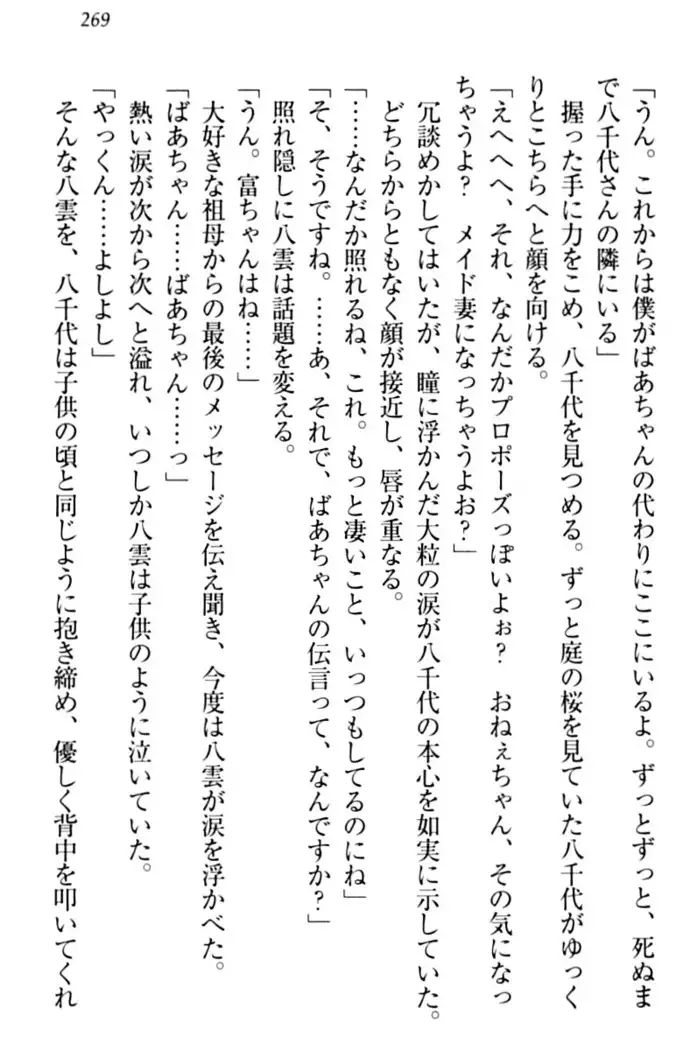 269
「うん。これからは僕がばあちゃんの代わりにここにいるよ。ずっとずっと、死ぬま
で八千代さんの隣にいる」
握った手に力をこめ、八千代を見つめる。ずっと庭の桜を見ていた八千代がゆっく
りとこちらへと顔を向ける。
「えへへへ、それ、なんだかプロポーズっぽいよぉ？　おねぇちゃん、その気になっ
ちゃうよ？　メイド妻になっちゃうよお？」
冗談めかしてはいたが、瞳に浮かんだ大粒の涙が八千代の本心を如実に示していた。
どちらからともなく顔が接近し、唇が重なる。
「……なんだか照れるね、これ。もっと凄いこと、いっつもしてるのにね」
「そ、そうですね。……あ、それで、ばあちゃんの伝言って、なんですか？」
照れ隠しに八雲は話題を変える。
「うん。富ちゃんはね……」
大好きな祖母からの最後のメッセージを伝え聞き、今度は八雲が涙を浮かべた。
「ばあちゃん……ばあちゃん……っ」
熱い涙が次から次へと溢れ、いつしか八雲は子供のように泣いていた。
「やっくん……よしよし」
そんな八雲を、八千代は子供の頃と同じように抱き締め、優しく背中を叩いてくれ